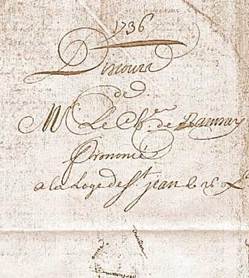 1736
Discours
de
Mr. Le Chr. de Ramsay
Prononcé
a la Loge de St. jean le 26